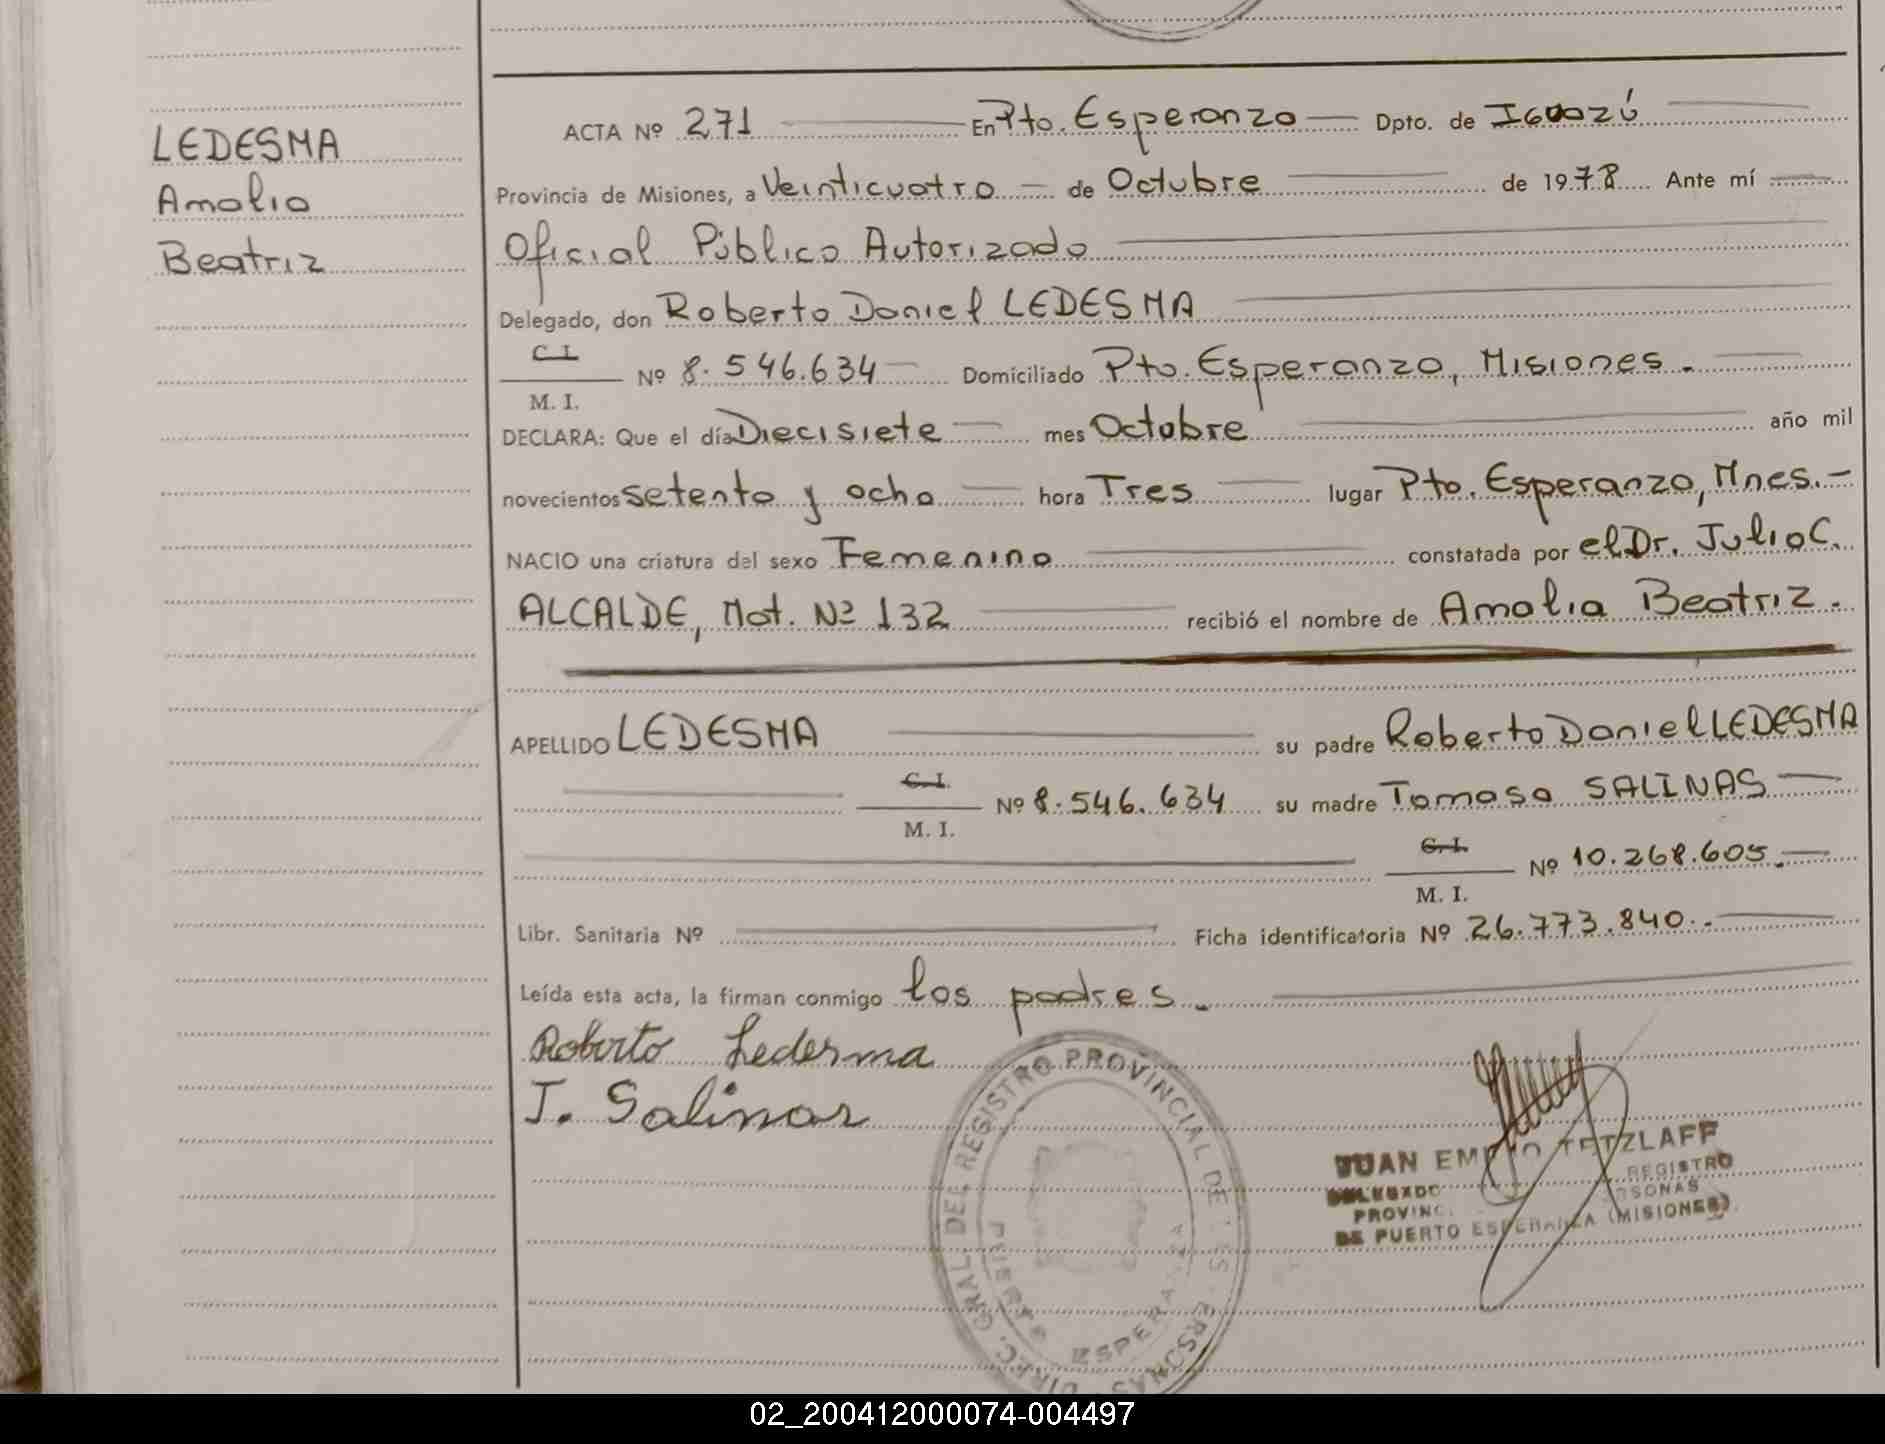 LEDESMA
Amalia
Beatriz
ACTA Nº 271 En Pto. Esperanza Dpto. de Iguazú
Provincia de Misiones, a Veinticuatro de Octubre de 1978 Ante mí
Oficial Público Autorizado
Delegado, don Roberto Daniel LEDESMA
C. I.
Nº 8.546.634 Domiciliado Pto. Esperanza, Misiones.
M. I.
DECLARA: Que el día Diecisiete mes Octubre año mil
novecientos setenta y ocho hora Tres lugar Pto. Esperanza, Mnes.-
NACIO una criatura del sexo Femenino constatada por el Dr. Julio C.
ALCALDE, Mat. Nº 132 recibió el nombre de Amalia Beatriz.
APELLIDO LEDESMA su padre Roberto Daniel LEDESMA
C. I.
Nº 8.546.634 su madre Tomasa SALINAS
M. I.
C. I.
Nº 10.268.605.
M. I.
Libr. Sanitaria Nº Ficha identificatoria Nº 26.773.840.-
Leída esta acta, la firman conmigo los padres.
Roberto Ledesma
T. Salinas
DIREC. GRAL. DEL REGISTRO PROVINCIAL DE LAS PERSONAS
PUERTO ESPERANZA
JUAN EMILIO TETZLAFF
DELEGADO REGISTRO
PROVINC. PERSONAS
DE PUERTO ESPERANZA (MISIONES)
02_200412000074-004497